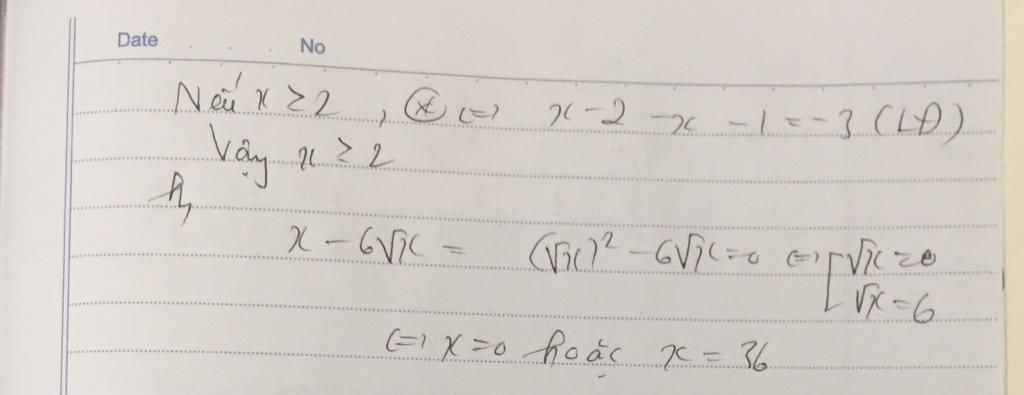 Date No
Nếu x ≥ 2 , (*) <=> x - 2 - x - 1 = -3 (LĐ)
Vậy x ≥ 2
h,
x - 6√x = (√x)² - 6√x = 0 <=> [ √x = 0
√x = 6
<=> x = 0 hoặc x = 36